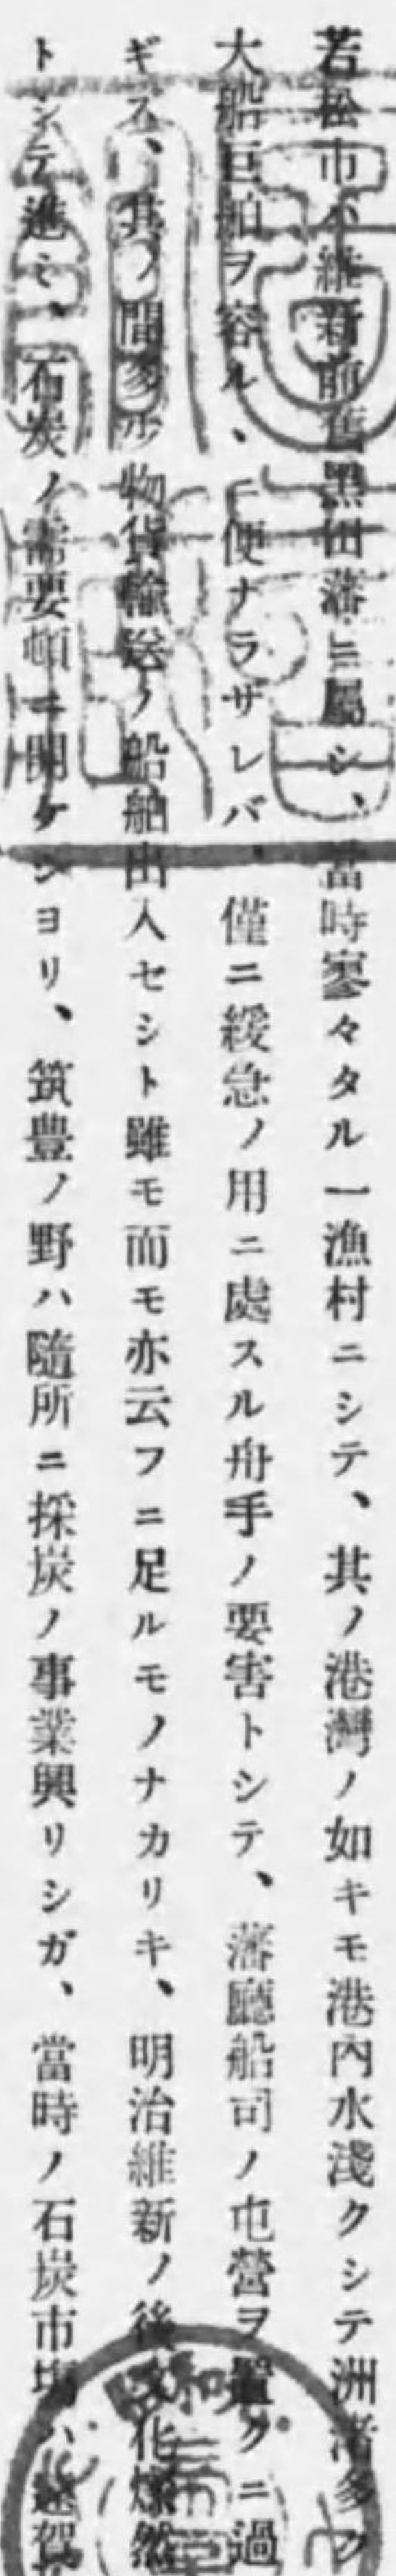 若松市ハ維新前舊黑田藩ニ屬シ、當時寥々タル一漁村ニシテ、其ノ港灣ノ如キモ港內水淺クシテ洲渚多ク
大船巨舶ヲ容ルヽニ便ナラザレバ、僅ニ緩急ノ用ニ處スル舟手ノ要害トシテ、藩廳船司ノ屯營ヲ置クニ過
ギズ、其ノ間多少物貨輸送ノ船舶出入セシト雖モ而モ亦云フニ足ルモノナカリキ、明治維新ノ後文化燦然
トシテ進ミ、石炭ノ需要頓ニ開ケシヨリ、筑豊ノ野ハ隨所ニ採炭ノ事業興リシガ、當時ノ石炭市場ハ遠賀